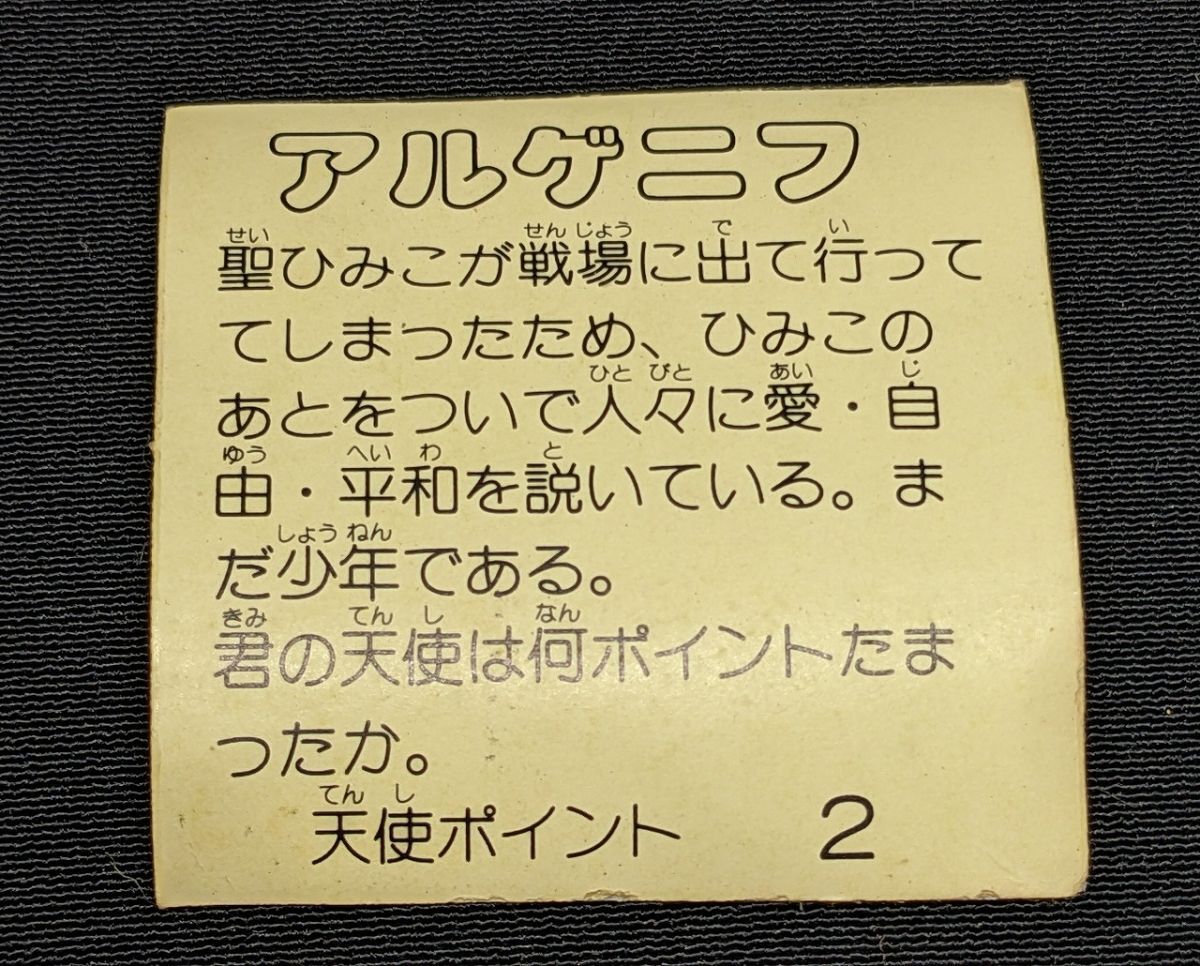 アルゲニフ
聖ひみこが戦場に出て行って
てしまったため、ひみこの
あとをついで人々に愛・自
由・平和を説いている。ま
だ少年である。
君の天使は何ポイントたま
ったか。
天使ポイント 2